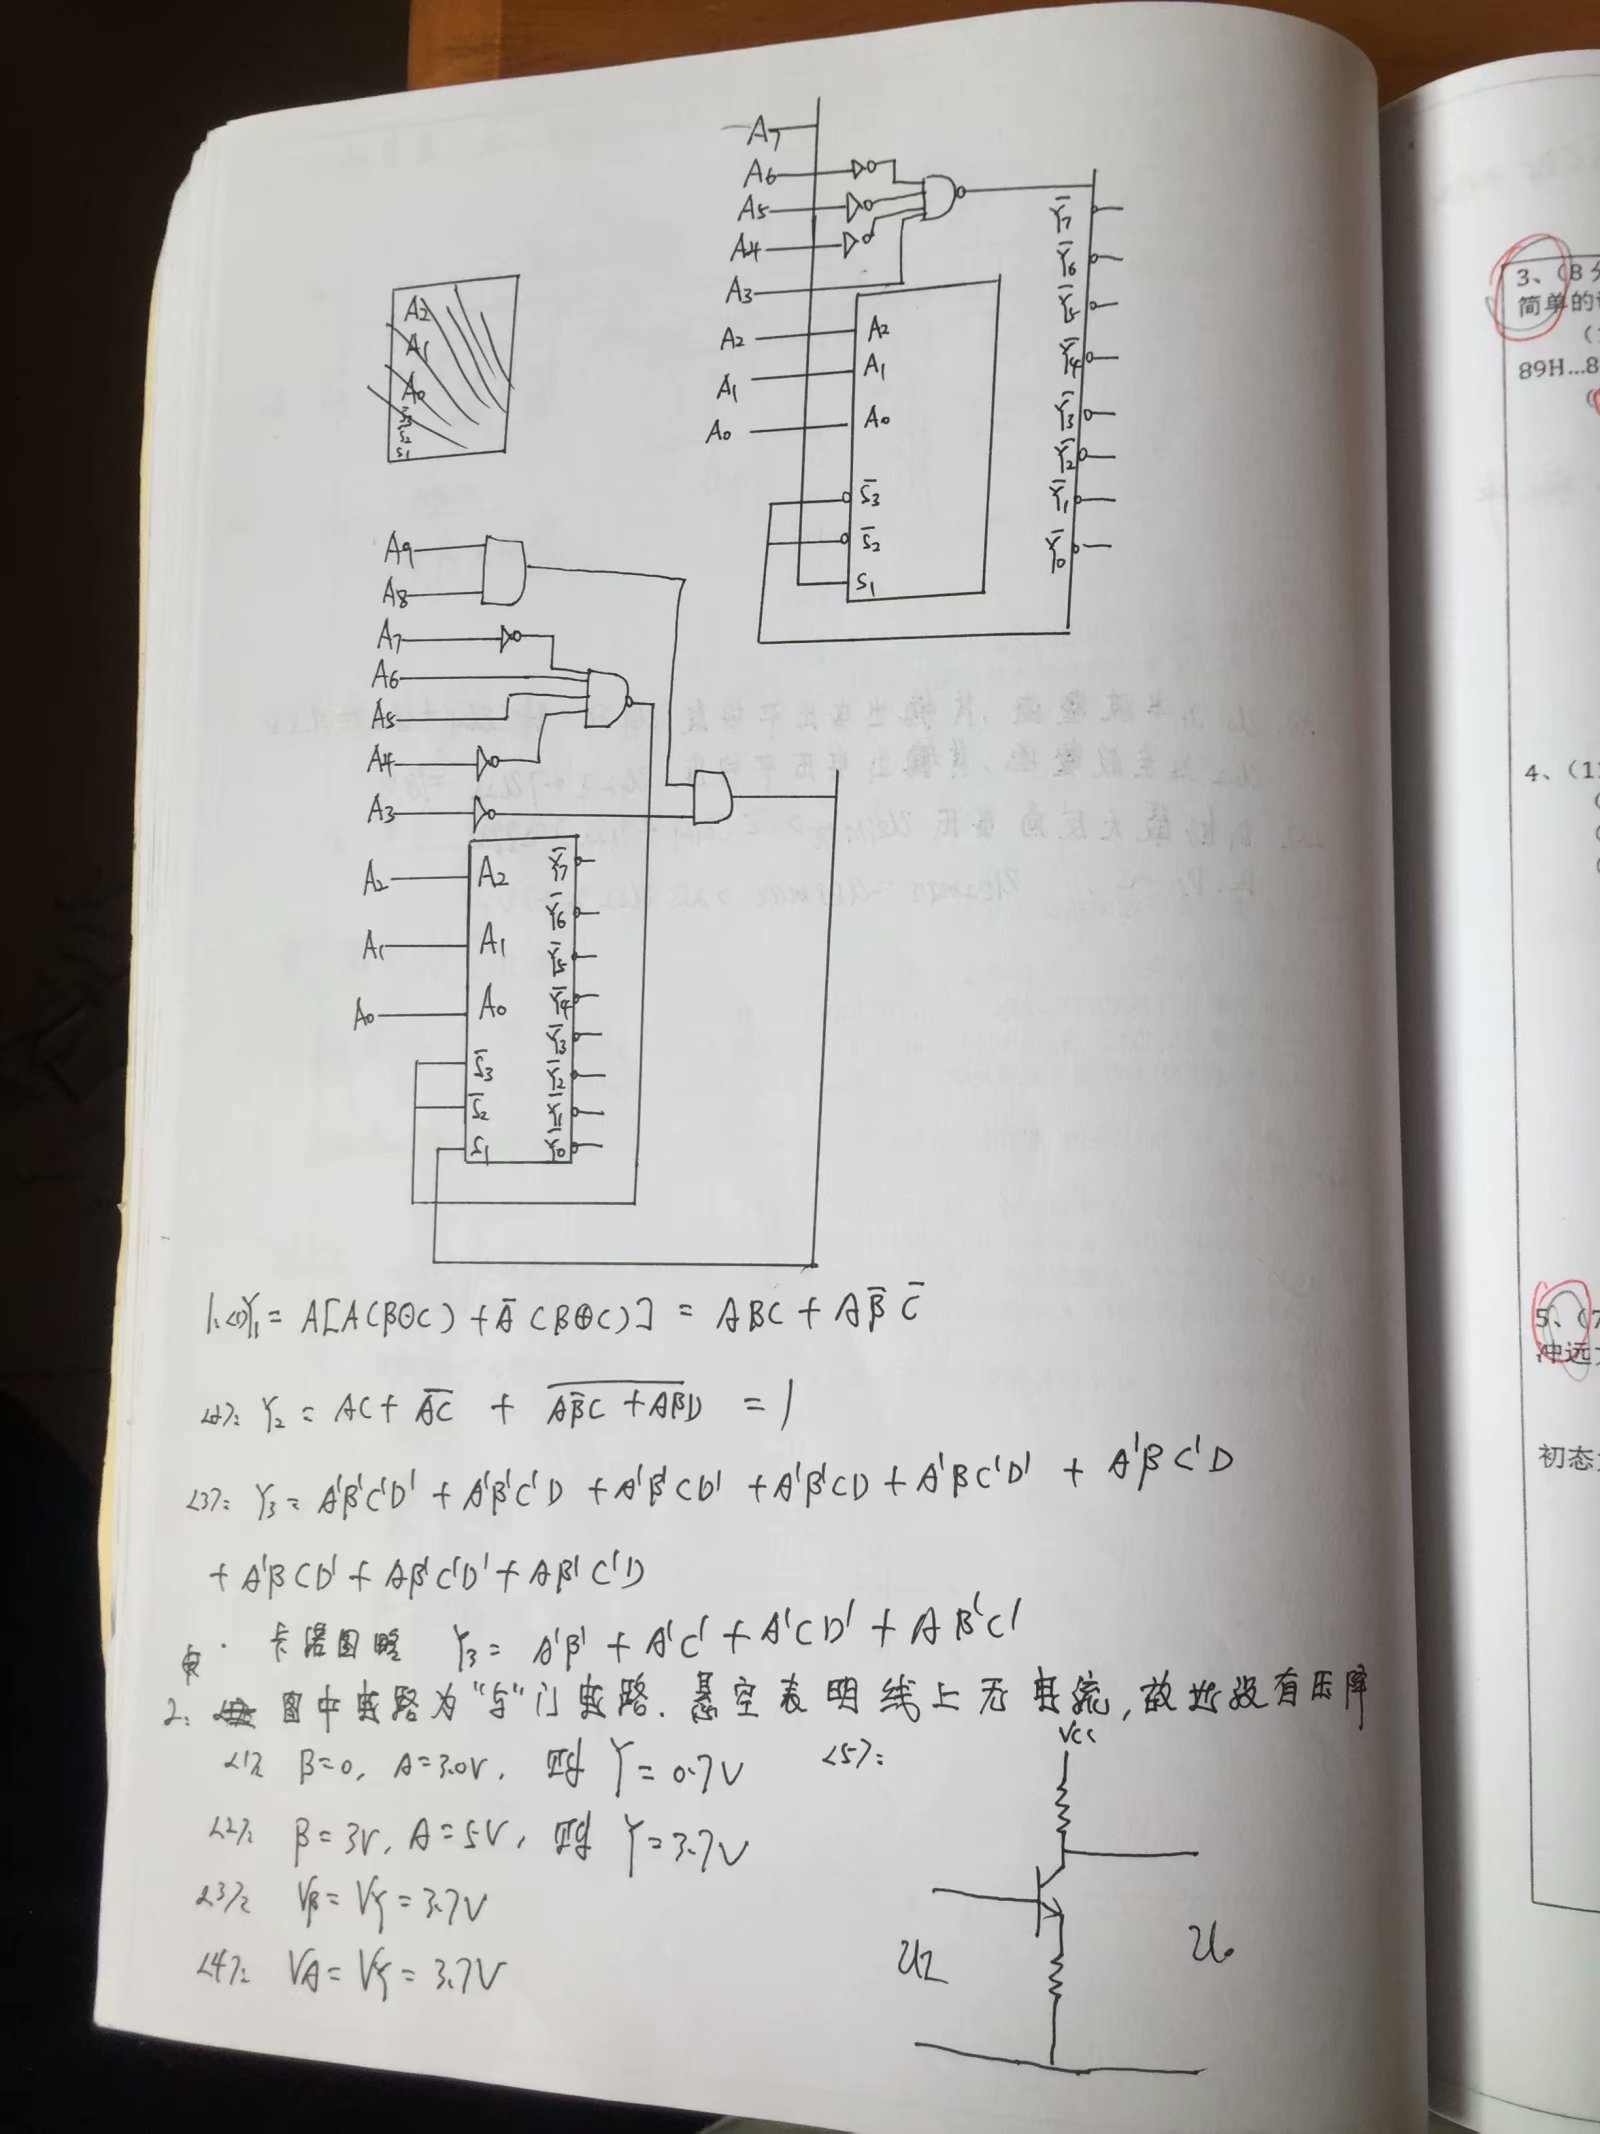 A7
A6
A5
A4
A3
A2
A1
A0
A2
A1
A0
S̅3
S̅2
S1
Y̅7
Y̅6
Y̅5
Y̅4
Y̅3
Y̅2
Y̅1
Y̅0
A2
A1
A0
S̅3
S̅2
S1
A9
A8
A7
A6
A5
A4
A3
A2
A1
A0
A2
A1
A0
S̅3
S̅2
S1
Y̅7
Y̅6
Y̅5
Y̅4
Y̅3
Y̅2
Y̅1
Y̅0
1.<1>Y1 = A[A(B⊙C) + A̅(B⊕C)] = ABC + AB̅C̅
<2>: Y2 = AC + \overline{AC} + \overline{AB̅C + ABD} = 1
<3>: Y3 = A'B'C'D' + A'B'C'D + A'B'CD' + A'B'CD + A'BC'D' + A'BC'D
+ A'BCD' + AB'C'D' + AB'C'D
由 卡诺图略 Y3 = A'B' + A'C' + A'CD' + AB'C'
2: 图中电路为"与"门电路. 悬空表明线上无电流, 故此没有压降
<1>: B=0, A=3.0V, 则 Y=0.7V
<2>: B=3V, A=5V, 则 Y=3.7V
<3>: VB=VY=3.7V
<4>: VA=VY=3.7V
<5>:
VCC
UI
Uo
3、(8
简单的
89H...8
4、(1
5、(7
冲远
初态